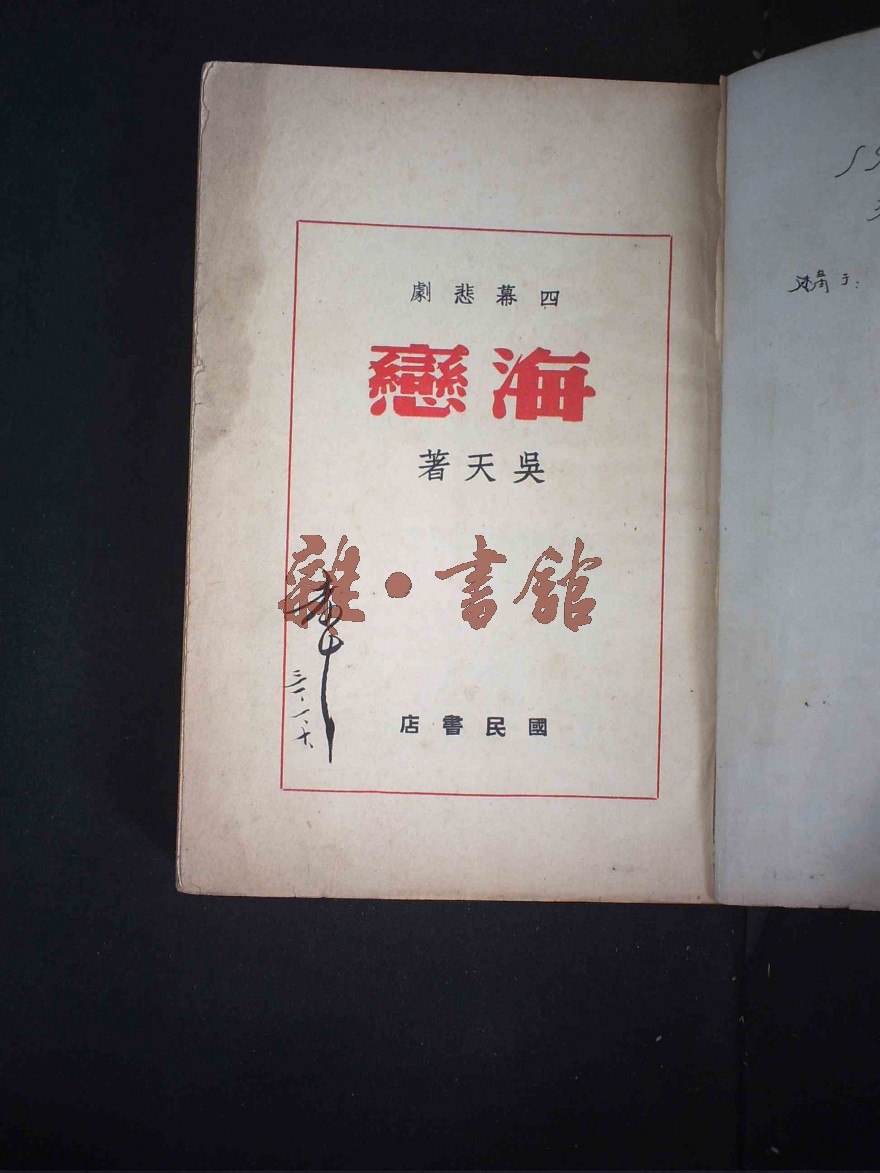 四幕悲劇
海戀
吳天著
雜·書館
三一.一.十.
國民書店